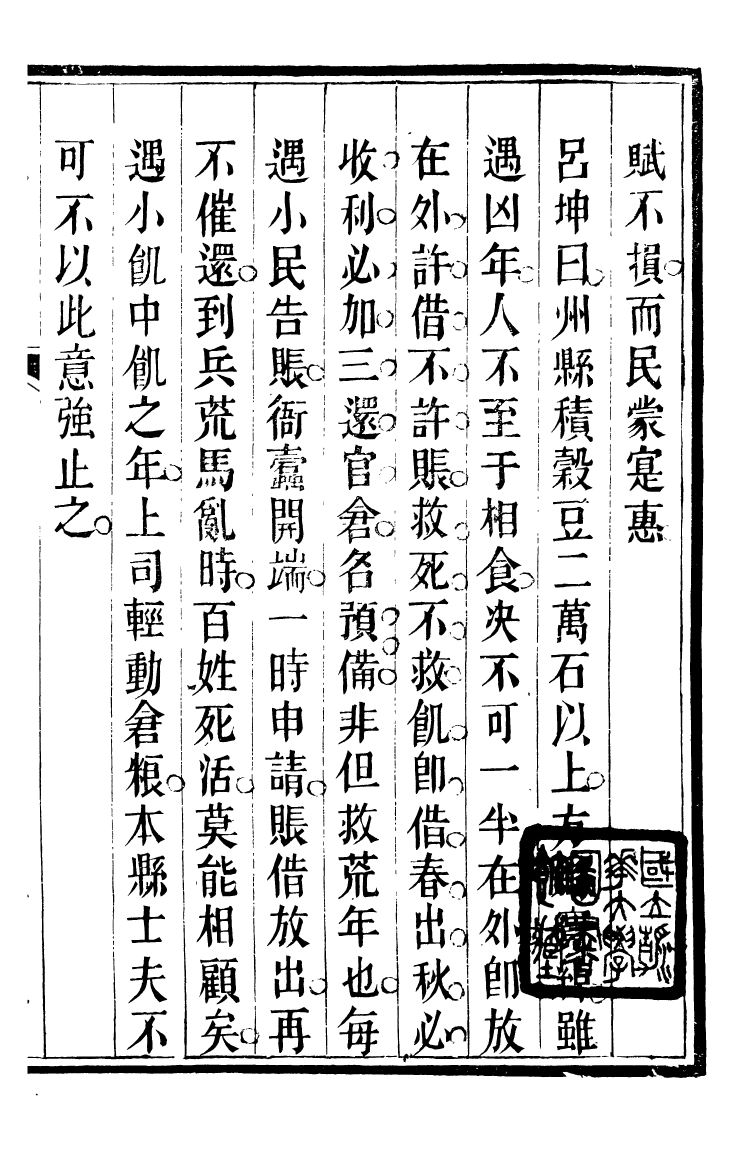 賦不損而民蒙寔惠
呂坤曰州縣積穀豆二萬石以上方雖
遇凶年人不至于相食决不可一半在外卽放
在外許借不許賬救死不救飢卽借春出秋必
收利必加三還官倉名預備非但救荒年也每
遇小民告賬衙蠹開端一時申請賬借放出再
不催還到兵荒馬亂時百姓死活莫能相顧矣
遇小飢中飢之年上司輕動倉粮本縣士夫不
可不以此意強止之
國立清華大學